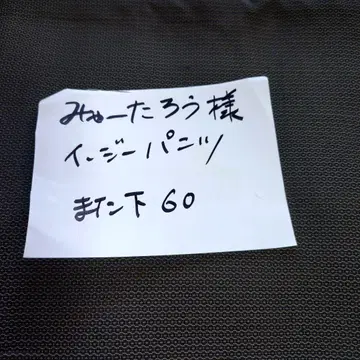 みゅーたろう様
イージーパンツ
また下60